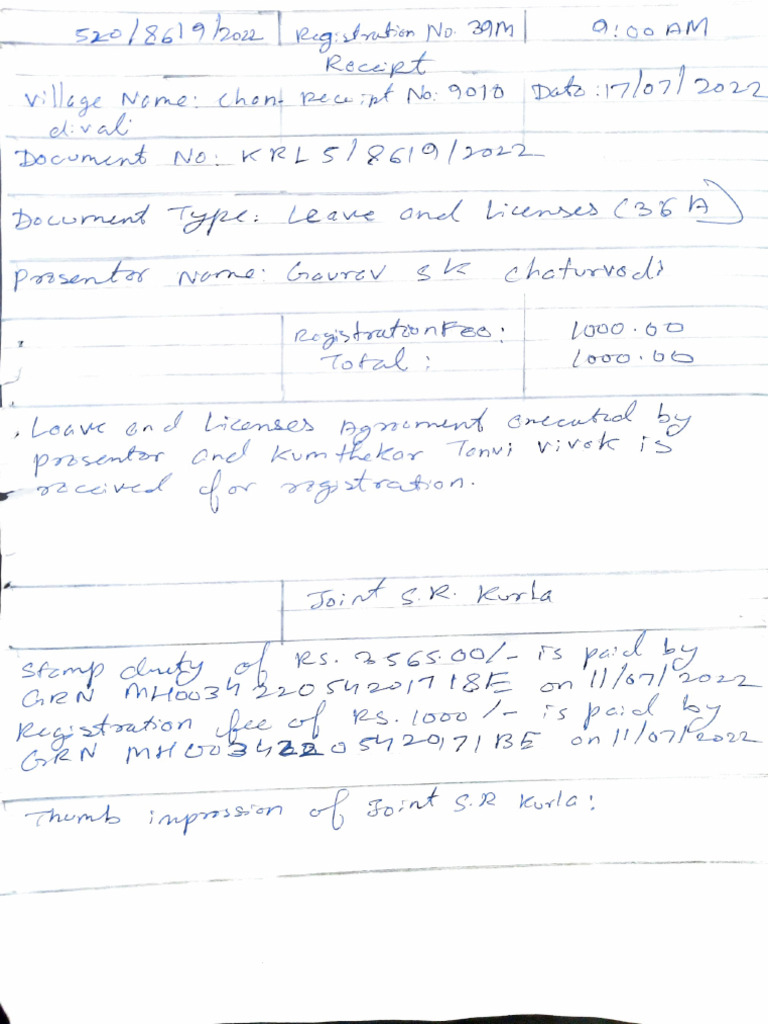 520/8619/2022 Registration No. 39M 9:00 AM
Receipt
Village Name: Chan- Receipt No: 9010 Date: 17/07/2022
divali
Document No: KRL5/8619/2022
Document Type: Leave and Licenses (36A)
Presenter Name: Gaurav SK Chaturvedi
Registration Fee: 1000.00
Total: 1000.00
Leave and Licenses Agreement executed by
presenter and Kumthekar Tanvi Vivek is
received for registration.
Joint S.R. Kurla
Stamp duety of RS. 3565.00/- is paid by
GRN MH003422054201718E on 11/07/2022
Registration fee of RS. 1000/- is paid by
GRN MH00342205420171BE on 11/07/2022
Thumb inpression of Joint S.R Kurla: